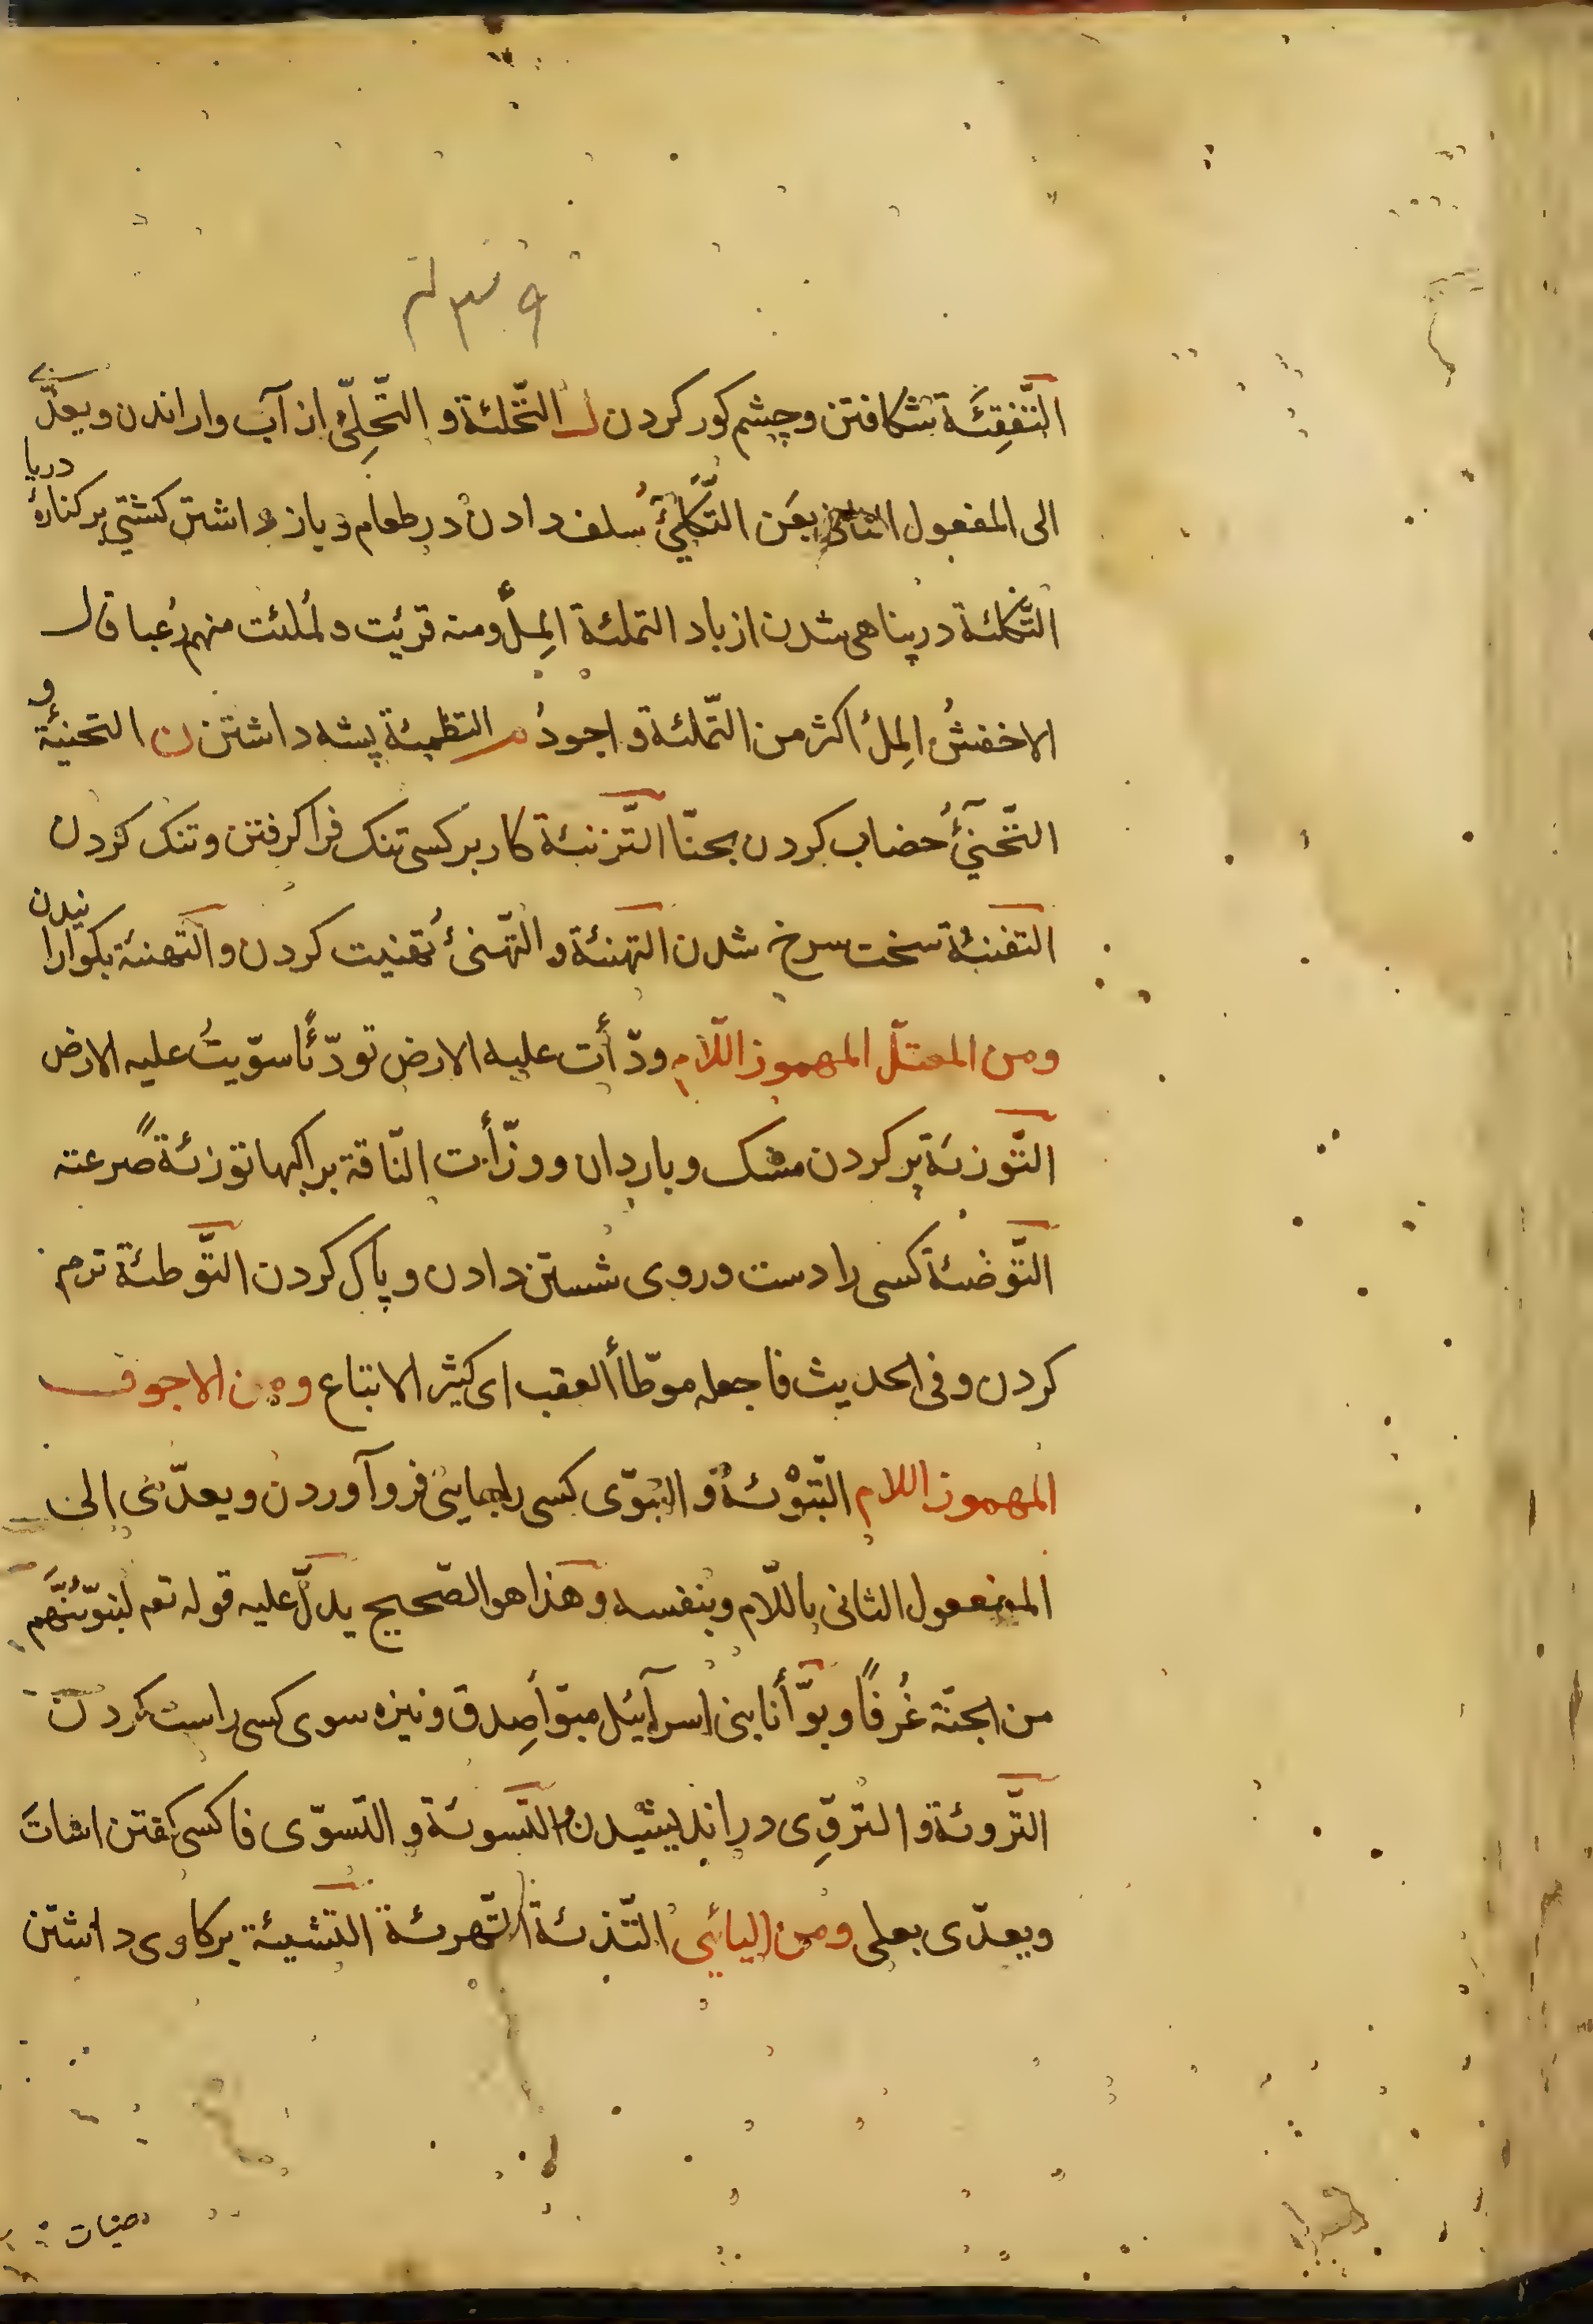 التَّفقِئَة شكافتن وچشم كور كردن ل التّحلئة و التّحلِئ از آب واراندن ويعدّى
الى المفعول الثانى بعَن التّكلِئُ سلف دادن در طعام و باز داشتن كشتى بر كنارهٔ دريا
التّكلئة در پناهى شدن از باد التملئة المِلُّ ومنه قرئت ولمُلئت منهم رُعبا قال
الاخفشُ المِلُ اكثر من التّملئة و اجودُ م التظمئة پشه داشتن ن التحنئة و
التّحنئُ حضاب كردن بحنّا التّزنئة كار بر كسى تنك فرا كرفتن و تنك كردن
التقنئة سخت سرخ شدن التهنئة و التّهنئُ تهنيت كردن و التهنئة بكوارانيدن
ومن المعتلّ المهموز اللّام ودّأت عليه الارض تودّئًا سوّيتُ عليه الارض
التّوزئة پر كردن مشك و باردان ووزّأت النّاقة براكبها توزئةً صرعته
التّوضئة كسى را دست و روى شستن دادن و پاك كردن التّوطئة نرم
كردن و فى الحديث فاجعله موطّأ العقب اى كثير الاتباع ومن الاجوف
المهموز اللام التّبوْئة و التبوّى كسى را بجايى فرو آوردن و يعدّى الى
المفعول الثانى باللّام وبنفسه وهذا هو الصّحيح يدلّ عليه قوله تعم لنبوّئنّهم
من الجنّة غُرفًا وبوّأنا بنى اسرآئيل مبوّأ صِدق و نيزه سوى كسى راست كردن
التّروئة و التروِّى در انديشيدن و التسوئة و التسوّى فا كسى كفتن اسات
ويعدّى بعلى ومن اليائى التّذئة التّهرئة التشيئة بر كاوى داشتن